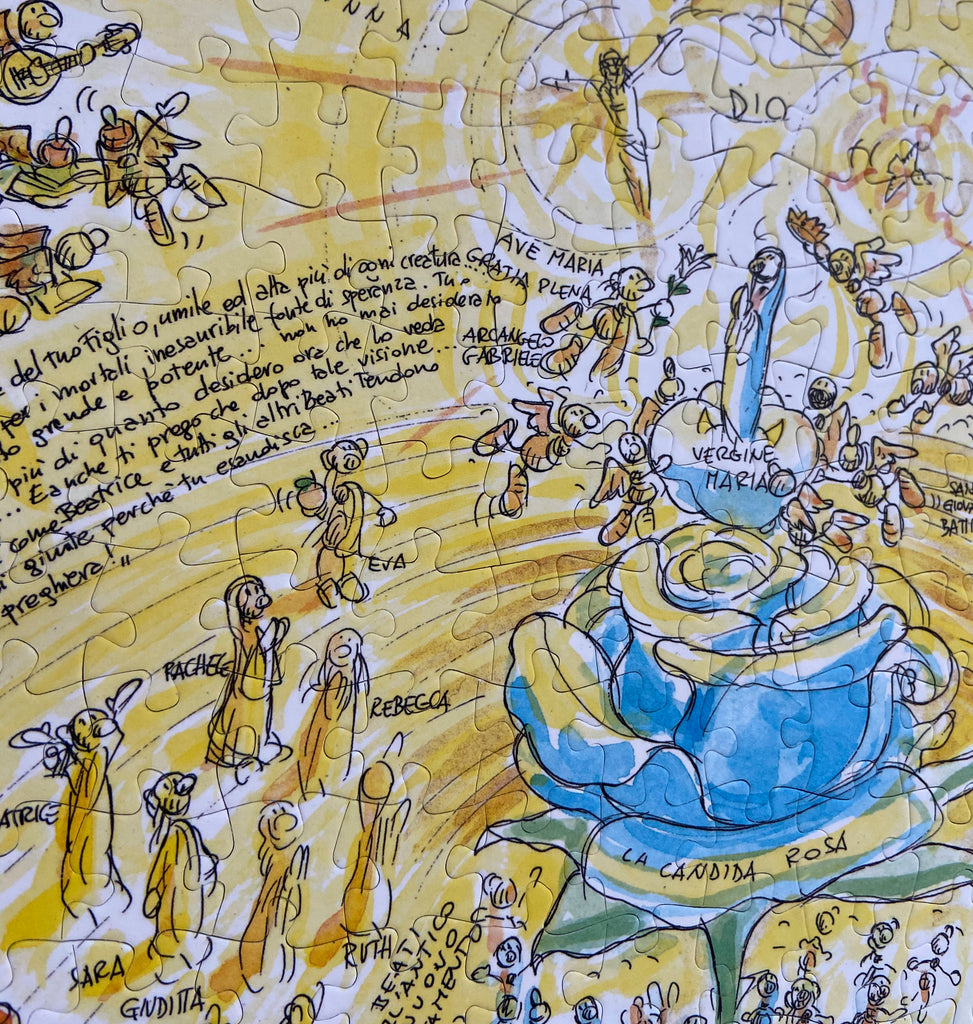 NNA
DIO
AVE MARIA
GRATIA PLENA
ARCANGELO
GABRIELE
del tuo Figlio, umile ed alta più di ogni creatura...
per i mortali inesauribile fonte di speranza. Tu
grande e potente... non ho mai desiderato
più di quanto desidero ora che lo veda
... E anche ti prego che dopo tale visione...
come Beatrice e tutti gli altri Beati Tendono
giunte perché tu esaudisca...
preghiera!"
VERGINE
MARIA
SAN
GIOVA
BATTI
EVA
RACHELE
REBECCA
ATRICE
LA CANDIDA ROSA
RUTH
SARA
GIUDITTA
BEATI
ANTICO